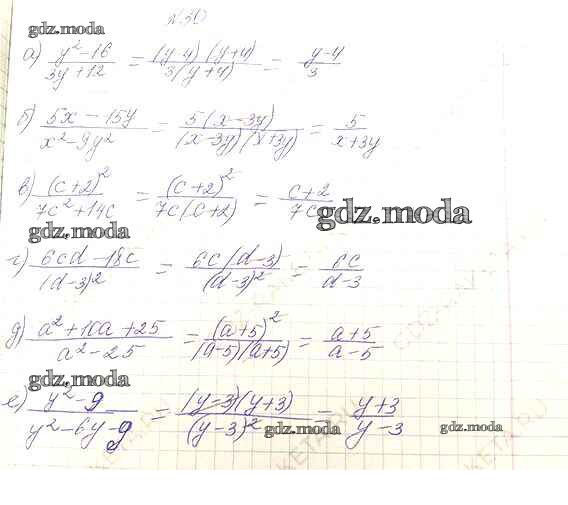 №30
gdz.moda
а) (y² - 16)/(3y + 12) = ((y-4)(y+4))/(3(y+4)) = (y-4)/3
б) (5x - 15y)/(x² - 9y²) = (5(x-3y))/((x-3y)(x+3y)) = 5/(x+3y)
в) (c+2)²/(7c² + 14c) = (c+2)²/(7c(c+2)) = (c+2)/(7c)
gdz.moda
gdz.moda
г) (6cd - 18c)/(d-3)² = (6c(d-3))/(d-3)² = 6c/(d-3)
д) (a² + 10a + 25)/(a² - 25) = (a+5)²/((a-5)(a+5)) = (a+5)/(a-5)
gdz.moda
е) (y² - 9)/(y² - 6y - 9) = ((y-3)(y+3))/(y-3)² = (y+3)/(y-3)
gdz.moda
gdz.moda